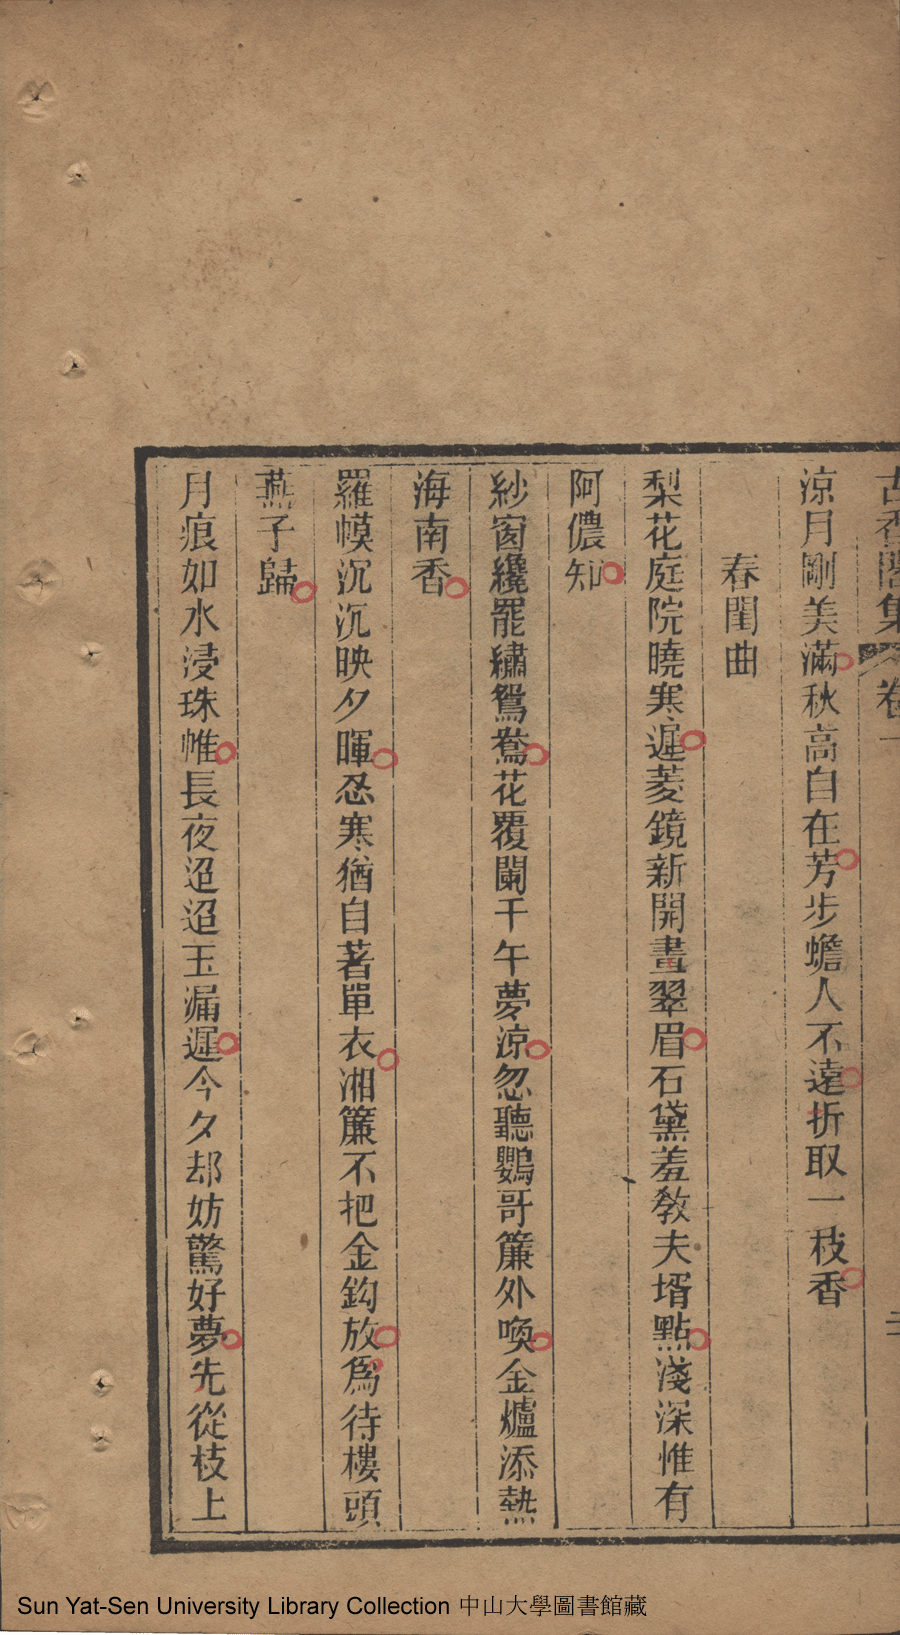 古香閣集 卷一
二
涼月剛美滿秋高自在芳步蟾人不遠折取一枝香
春閨曲
梨花庭院曉寒遲菱鏡新開畫翠眉石黛羞教夫壻點淺深惟有
阿儂知
紗窗纔罷繡鴛鴦花覆闌干午夢涼忽聽鸚哥簾外喚金爐添熱
海南香
羅幙沉沉映夕暉忍寒猶自著單衣湘簾不把金鈎放爲待樓頭
燕子歸
月痕如水浸珠帷長夜迢迢玉漏遲今夕却妨驚好夢先從枝上
Sun Yat-Sen University Library Collection 中山大學圖書館藏